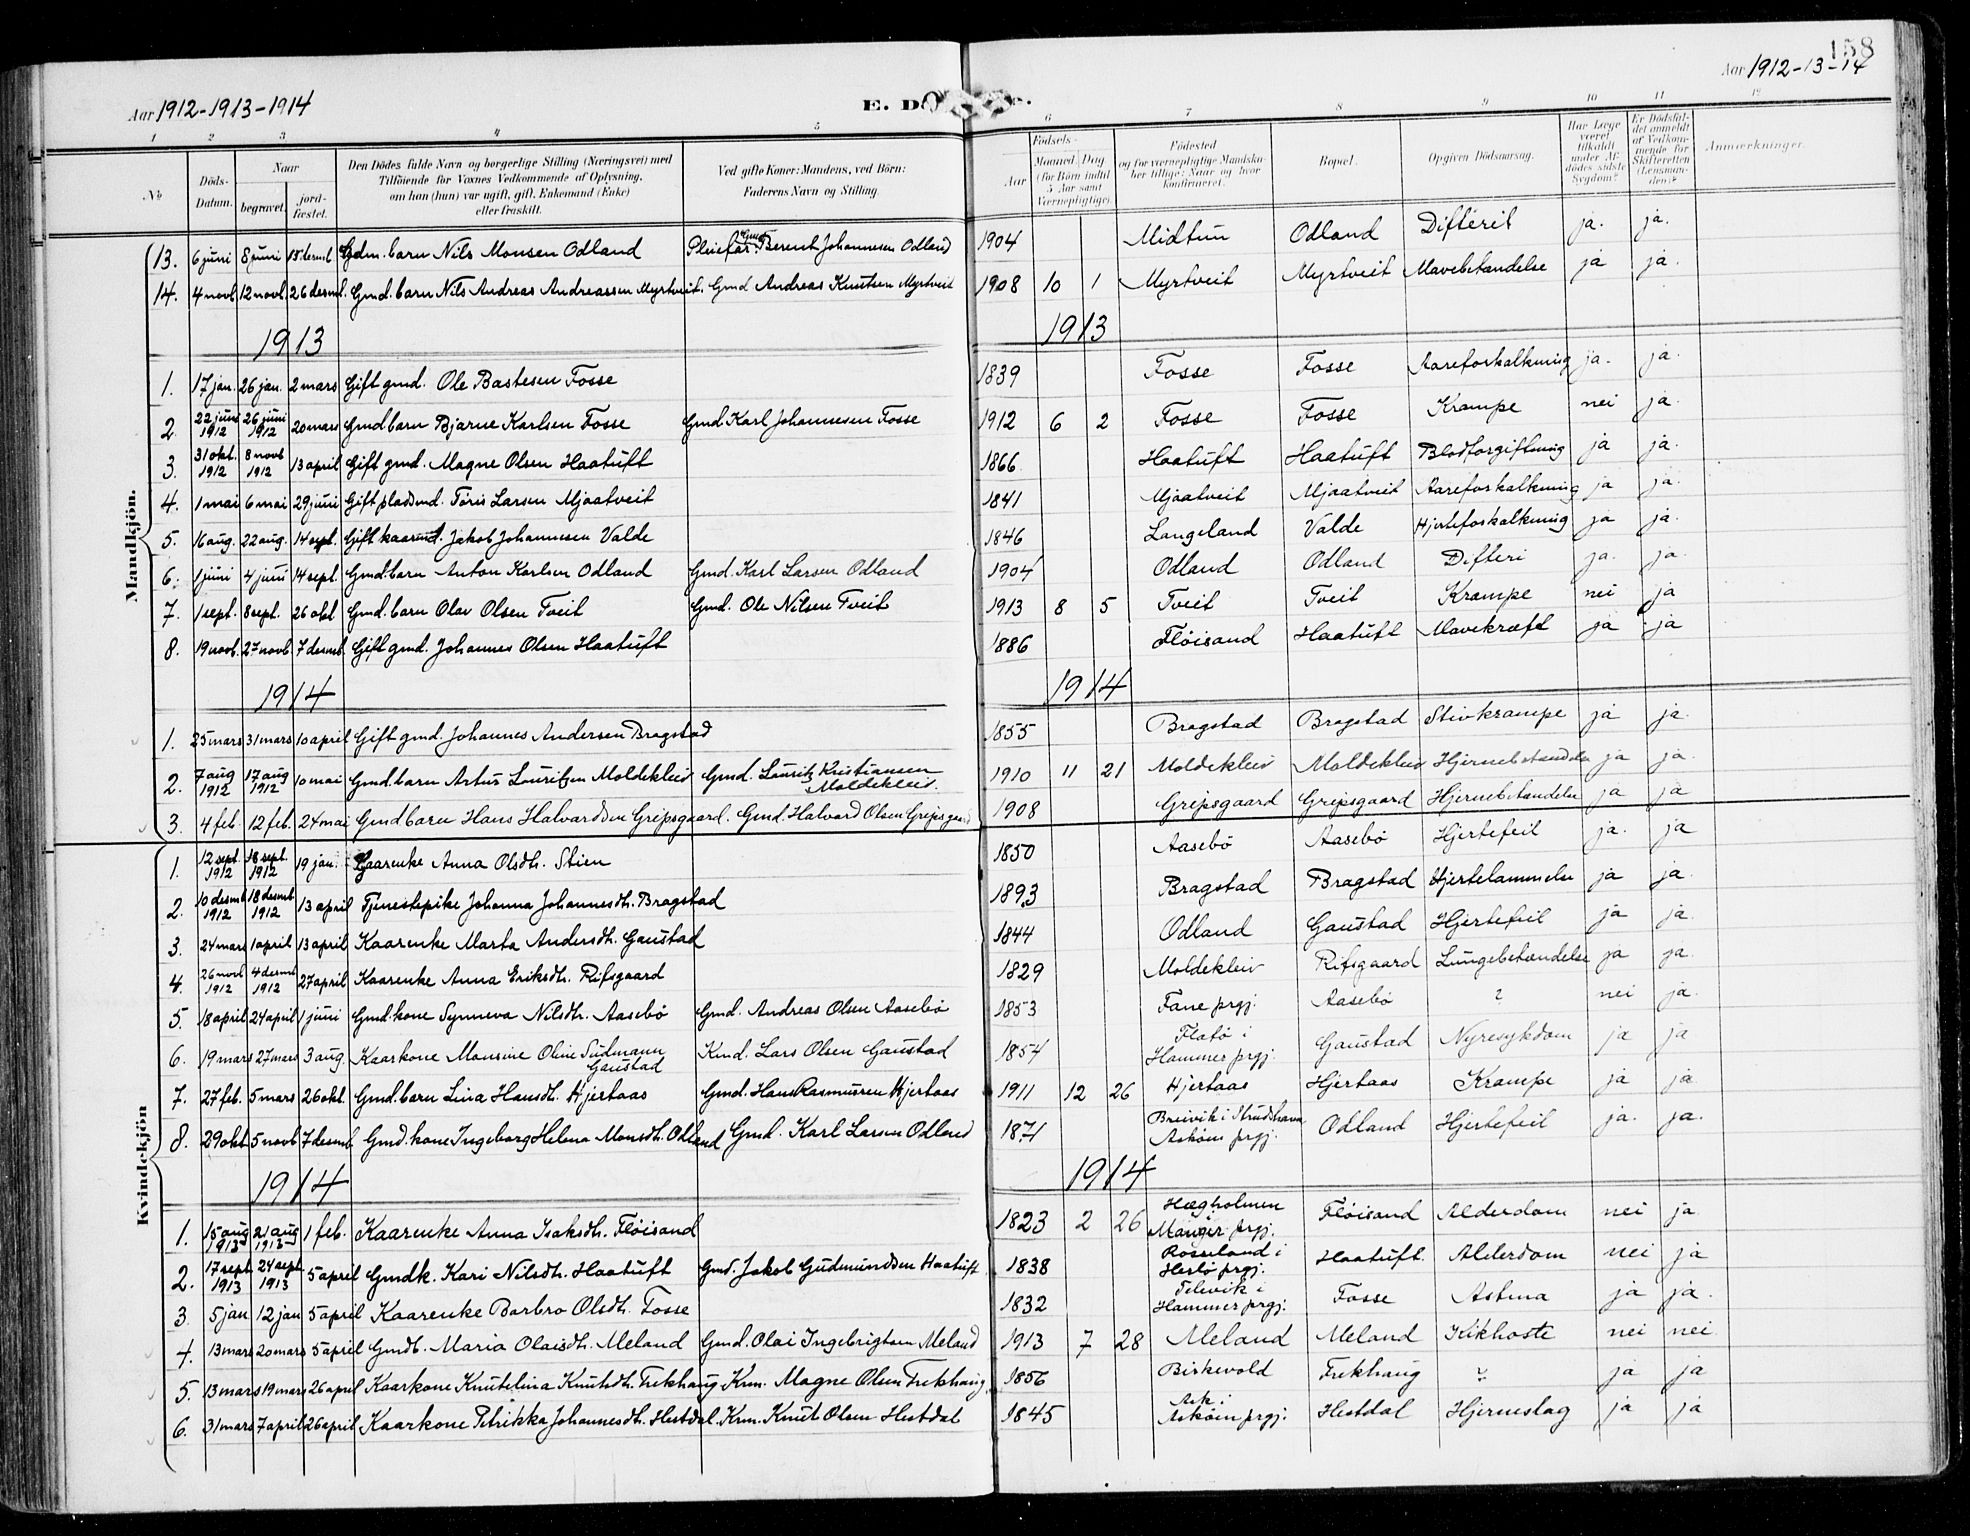 Aar 1912-1913-1914
E. Dö
158
Aar 1912-13-14
1 2 3 4 5 6 7 8 9 10 11 12
No
Döds-Datum.
Naar
begravet.
jord-fæstet.
Den Dödes fulde Navn og borgerlige Stilling (Næringsvei) med Tilföiende for Voxnes Vedkommende af Oplysning, om han (hun) var ugift, gift, Enkemand (Enke) eller fraskilt.
Ved gifte Koner: Mandens, ved Börn: Faderens Navn og Stilling.
Födsels-
Aar
Maaned Dag
(for Börn indtil 5 Aar samt Værnepligtige).
Födested
og for værnepligtige Mandskaber tillige: Naar og hvor konfirmeret.
Bopæl.
Opgiven Dödsaarsag.
Har Læge været tilkaldt under Afdødes sidste Sygdom?
Er Dödsfaldet anmeldt af Vedkommende for Skifteretten (Lensmanden)?
Anmærkninger.
Mandkjön.
13. 6 juni 8 juni 15 desmb Gdm. barn Nils Monsen Odland Pleiefar: Gmd Berent Johannesen Odland 1904 Midtun Odland Difterit ja. ja.
14. 4 novb. 12 novb. 26 desmb. Gmd. barn Nils Andreas Andreassen Myrtveit. Gmd Andreas Knutsen Myrtveit 1908 10 1 Myrtveit Myrtveit Mavebetændelse ja ja.
1913 1913
1. 17 jan. 26 jan. 2 mars Gift gmd. Ole Bastesen Fosse 1839 Fosse Fosse Aareforkalkning ja. ja.
2. 22 juni 1912 26 juni 1912 20 mars Gmd barn Bjarne Karlsen Fosse Gmd Karl Johannesen Fosse 1912 6 2 Fosse Fosse Krampe nei ja.
3. 31 okt. 1912 8 novb 1912 13 april Gift gmd. Magne Olsen Haatuft 1866 Haatuft Haatuft Blodforgiftning ja ja.
4. 1 mai 6 mai 29 juni Gift pladsmd. Töris Larsen Mjaatveit 1841 Mjaatveit Mjaatveit Aareforkalkning ja ja.
5. 16 aug. 22 aug. 14 sept. Gift kaarmd. Jakob Johannesen Valde 1846 Langeland Valde Hjerteforkalkning ja ja.
6. 1 juni 4 juni 14 sept. Gmd. barn Anton Karlsen Odland Gmd. Karl Larsen Odland 1904 Odland Odland Difteri ja. ja.
7. 1 sept. 8 sept. 26 okt Gmd. barn Olav Olsen Tveit Gmd. Ole Nilsen Tveit 1913 8 5 Tveit Tveit Krampe nei ja
8. 19 novb. 27 novb 7 desmb. Gift gmd. Johannes Olsen Haatuft 1886 Flöisand Haatuft Mavekræft ja ja
1914 1914
1. 25 mars 31 mars 10 april Gift gmd. Johannes Andersen Bragstad 1855 Bragstad Bragstad Stivkrampe ja ja.
2. 7 aug 1912 17 aug 1912 10 mai Gmd. barn Artur Lauritzen Moldekleiv Gmd. Lauritz Kristiansen Moldekleiv. 1910 11 21 Moldekleiv Moldekleiv Hjernebetændelse ja ja.
3. 4 feb. 12 feb. 24 mai Gmd barn Hans Halvardsen Gripsgaard. Gmd. Halvard Olsen Gripsgaard 1908 Gripsgaard Gripsgaard Hjernebetændelse ja ja
Kvindekjön
1. 12 sept. 1912 18 sept. 1912 19 jan. Kaarenke Anna Olsdtr. Stien 1850 Aasebö Aasebö Hjertefeil ja. ja
2. 10 desmb 1912 18 desmb 1912 13 april Tjenestepike Johanna Johannesdtr. Bragstad 1893 Bragstad Bragstad Hjertelammelse ja ja.
3. 24 mars 1 april 13 april Kaarenke Marta Andersdtr. Gaustad 1844 Odland Gaustad Hjertefeil ja ja.
4. 26 novb 1912 4 desmb 1912 27 april Kaarenke Anna Eriksdtr. Rifsgaard 1829 Moldekleiv Rifsgaard Lungebetændelse ja ja.
5. 18 april 24 april 1 juni Gmd. kone Synneva Nilsdtr. Aasebö Gmd. Andreas Olsen Aasebö 1853 Fane prgj. Aasebö ? nei ja.
6. 19 mars 27 mars 3 aug. Kaarkone Monsine Oline Südmann Gaustad Kmd. Lars Olsen Gaustad 1854 Flatö i Hammer prgj. Gaustad Nyresykdom ja ja.
7. 27 feb. 5 mars 26 okt. Gmd. barn Lina Hansdtr. Hjertaas Gmd. Hans Rasmussen Hjertaas 1911 12 26 Hjertaas Hjertaas Krampe ja ja
8. 29 okt 5 novb 7 desmb Gmd. kone Ingeborg Helena Monsdtr. Odland Gmd. Karl Larsen Odland 1871 Breivik i Strudshavn Asköens prgj. Odland Hjertefeil ja. ja.
1914 1914
1. 15 aug 1913 21 aug 1913 1 feb. Kaarenke Anna Isaksdtr. Flöisand 1823 2 26 Hægholmen i Manger prgj. Flöisand Alderdom nei ja.
2. 17 sept 1913 24 sept 1913 5 april Gmdk. Kari Nilsdtr. Haatuft Gmd. Jakob Gudmundsen Haatuft 1838 Rosseland i Herlö prgj. Haatuft. Alderdom nei ja
3 5 jan 12 jan 5 april Kaarenke Barbro Olsdtr. Fosse 1832 Televik i Hammer prgj. Fosse Astma ja ja.
4. 13 mars 20 mars 5 april Gmdb. Maria Olaisdtr. Meland Gmd. Olai Ingebrigtsen Meland 1913 7 28 Meland Meland Kikhoste nei nei.
5. 13 mars 19 mars 26 april Kaarkone Knutelina Knutsdtr. Frekhaug Krm. Magne Olsen Frekhaug 1856 Birkevold Frekhaug ? ja ja
6. 31 mars 7 april 26 april Kaarkone Petrikka Johannesdtr. Hestdal. Krm. Knut Olsen Hestdal 1845 Ask i Asköen prgj. Hestdal Hjerneslag ja ja